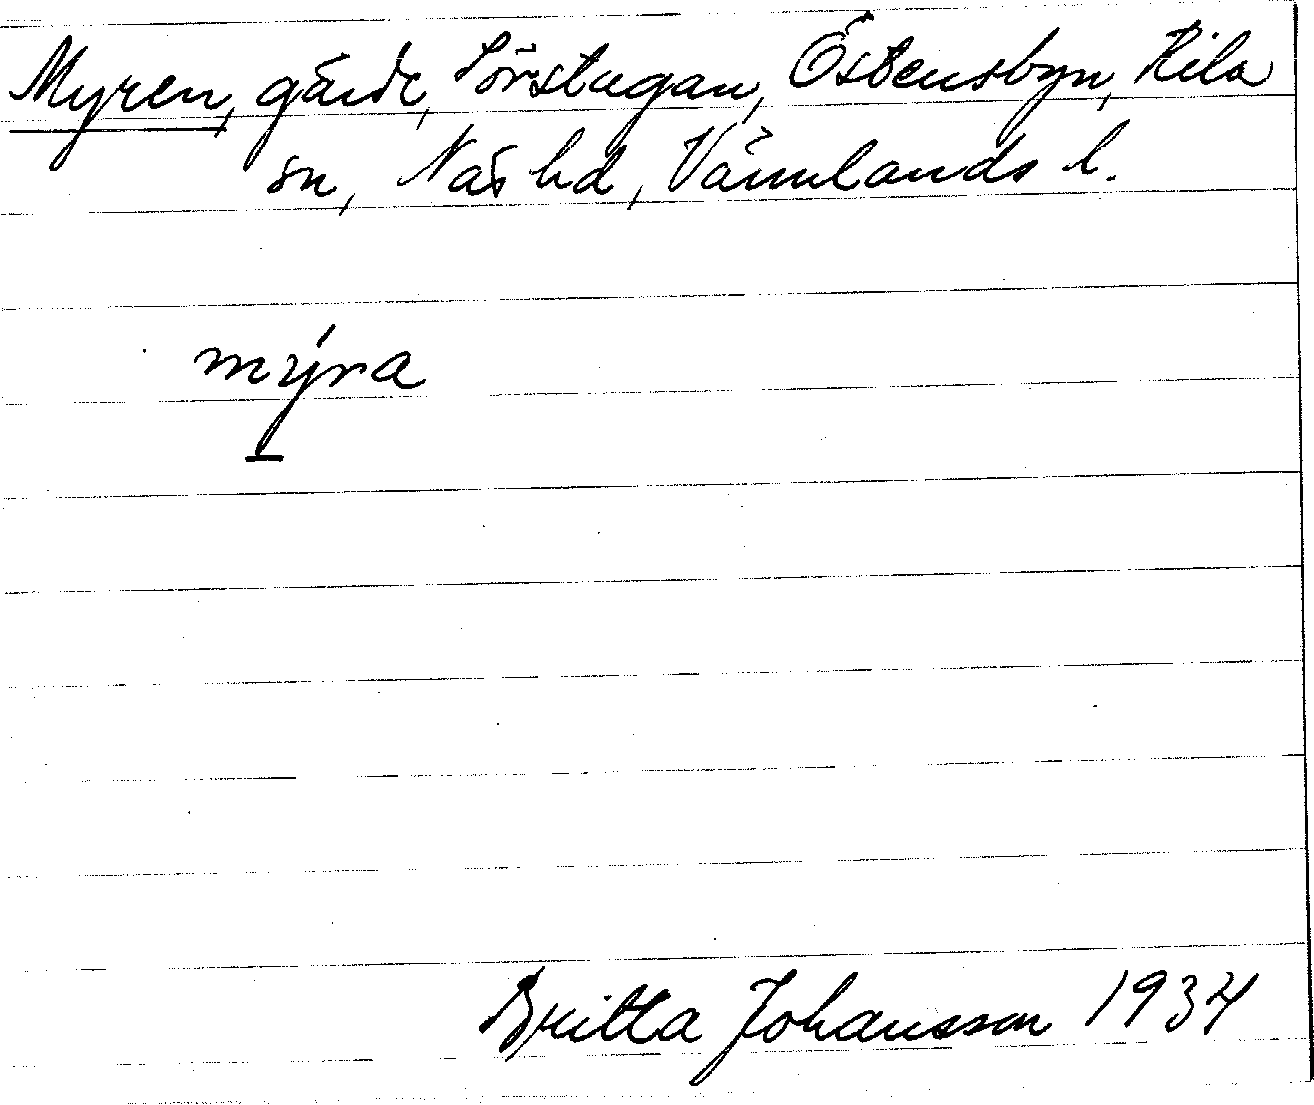 Myren, gärde, Sörstugan, Östensbyn, Kila
sn, Näs hd, Värmlands l.
mýra
Britta Johansson 1934